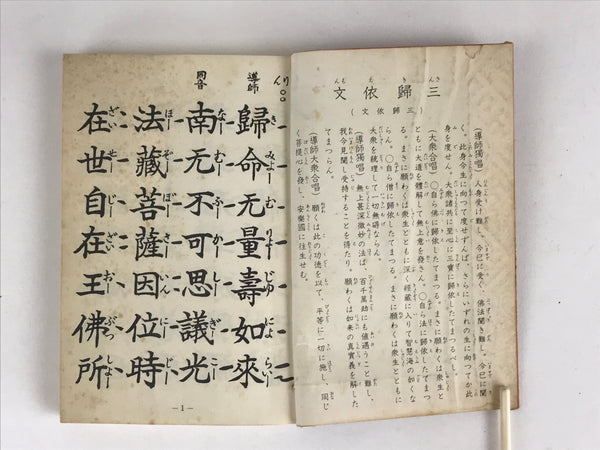 三歸依文
（三歸依文）
（導師獨唱） 人身受け難し、今已に受く、佛法聞き難し、今已に聞
く、此身今生に向つて度せずんば、さらにいずれの生に向つてか此
身を度せん。大衆諸共に至心に三寶に歸依したてまつるべし。
（大衆合唱） 〇自ら佛に歸依したてまつる。まさに願わくは衆生と
ともに大道を體解して無上意を發さん。〇自ら法に歸依したてまつ
る。まさに願わくは衆生とともに深く經藏に入りて智慧海の如くな
らん。〇自ら僧に歸依したてまつる。まさに願わくは衆生とともに
大衆を統理して一切無碍ならん。
（導師獨唱） 無上甚深微妙の法は、百千萬劫にも値遇うこと難し、
我今見聞し受持することを得たり。願わくは如来の真實義を解した
てまつらん。
（導師大衆合唱） 願くは此の功德を以て、平等に一切に施し、同じ
く菩提心を發し、安樂國に往生せむ。
りん〇〇
導師
歸命无量壽如來
同音
南无不可思議光
法藏菩薩因位時
在世自在王佛所
—1—